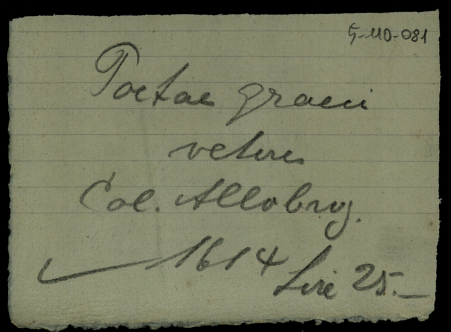 5-110-081
Poetae graeci
veteres
Col. Allobrog.
1614 Lire 25.—